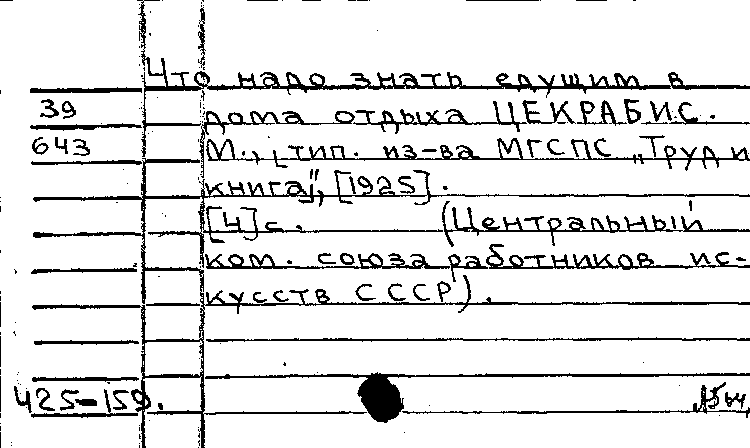 Что надо знать едущим в
39 дома отдыха ЦЕКРАБИС.
643 М., тип. из-ва МГСПС „Труд и
книга", [1925].
[4]с. (Центральный
ком. союза работников ис-
кусств СССР).
425-159.